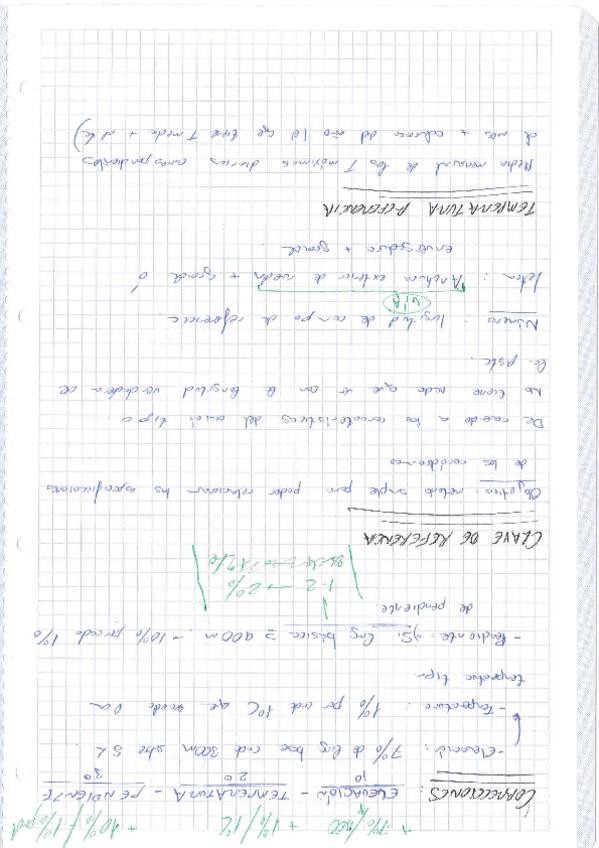 + 7%/300 + 1%/1ºC + 10%/1% pend
CORRECCIONES: ELEVACIÓN - TEMPERATURA - PENDIENTE
1º 2º 3º
- Elevación: 7% de long base cada 300m sobre S.L
- Temperatura: 1% por cada 1ºC que exceda Da
temperatura tipo
- Pendiente: Si long básica ≥ 900m → 10% por cada 1%
de pendiente.
1-2 → 2%
CLAVE DE REFERENCIA
Objetivo: método simple para poder relacionar las especificaciones
de los aeródromos
De acuerdo a las características del avión tipo
No tiene nada que ver con la longitud verdadera de
la pista.
Número: longitud de campo de referencia
VIA
letra: Anchura exterior de ruedas + grande ó
envergadura + grande
TEMPERATURA REFERENCIA
Media mensual de las T máximas diarias correspondientes
al mes + caluroso del año (el que tiene T media + alta)